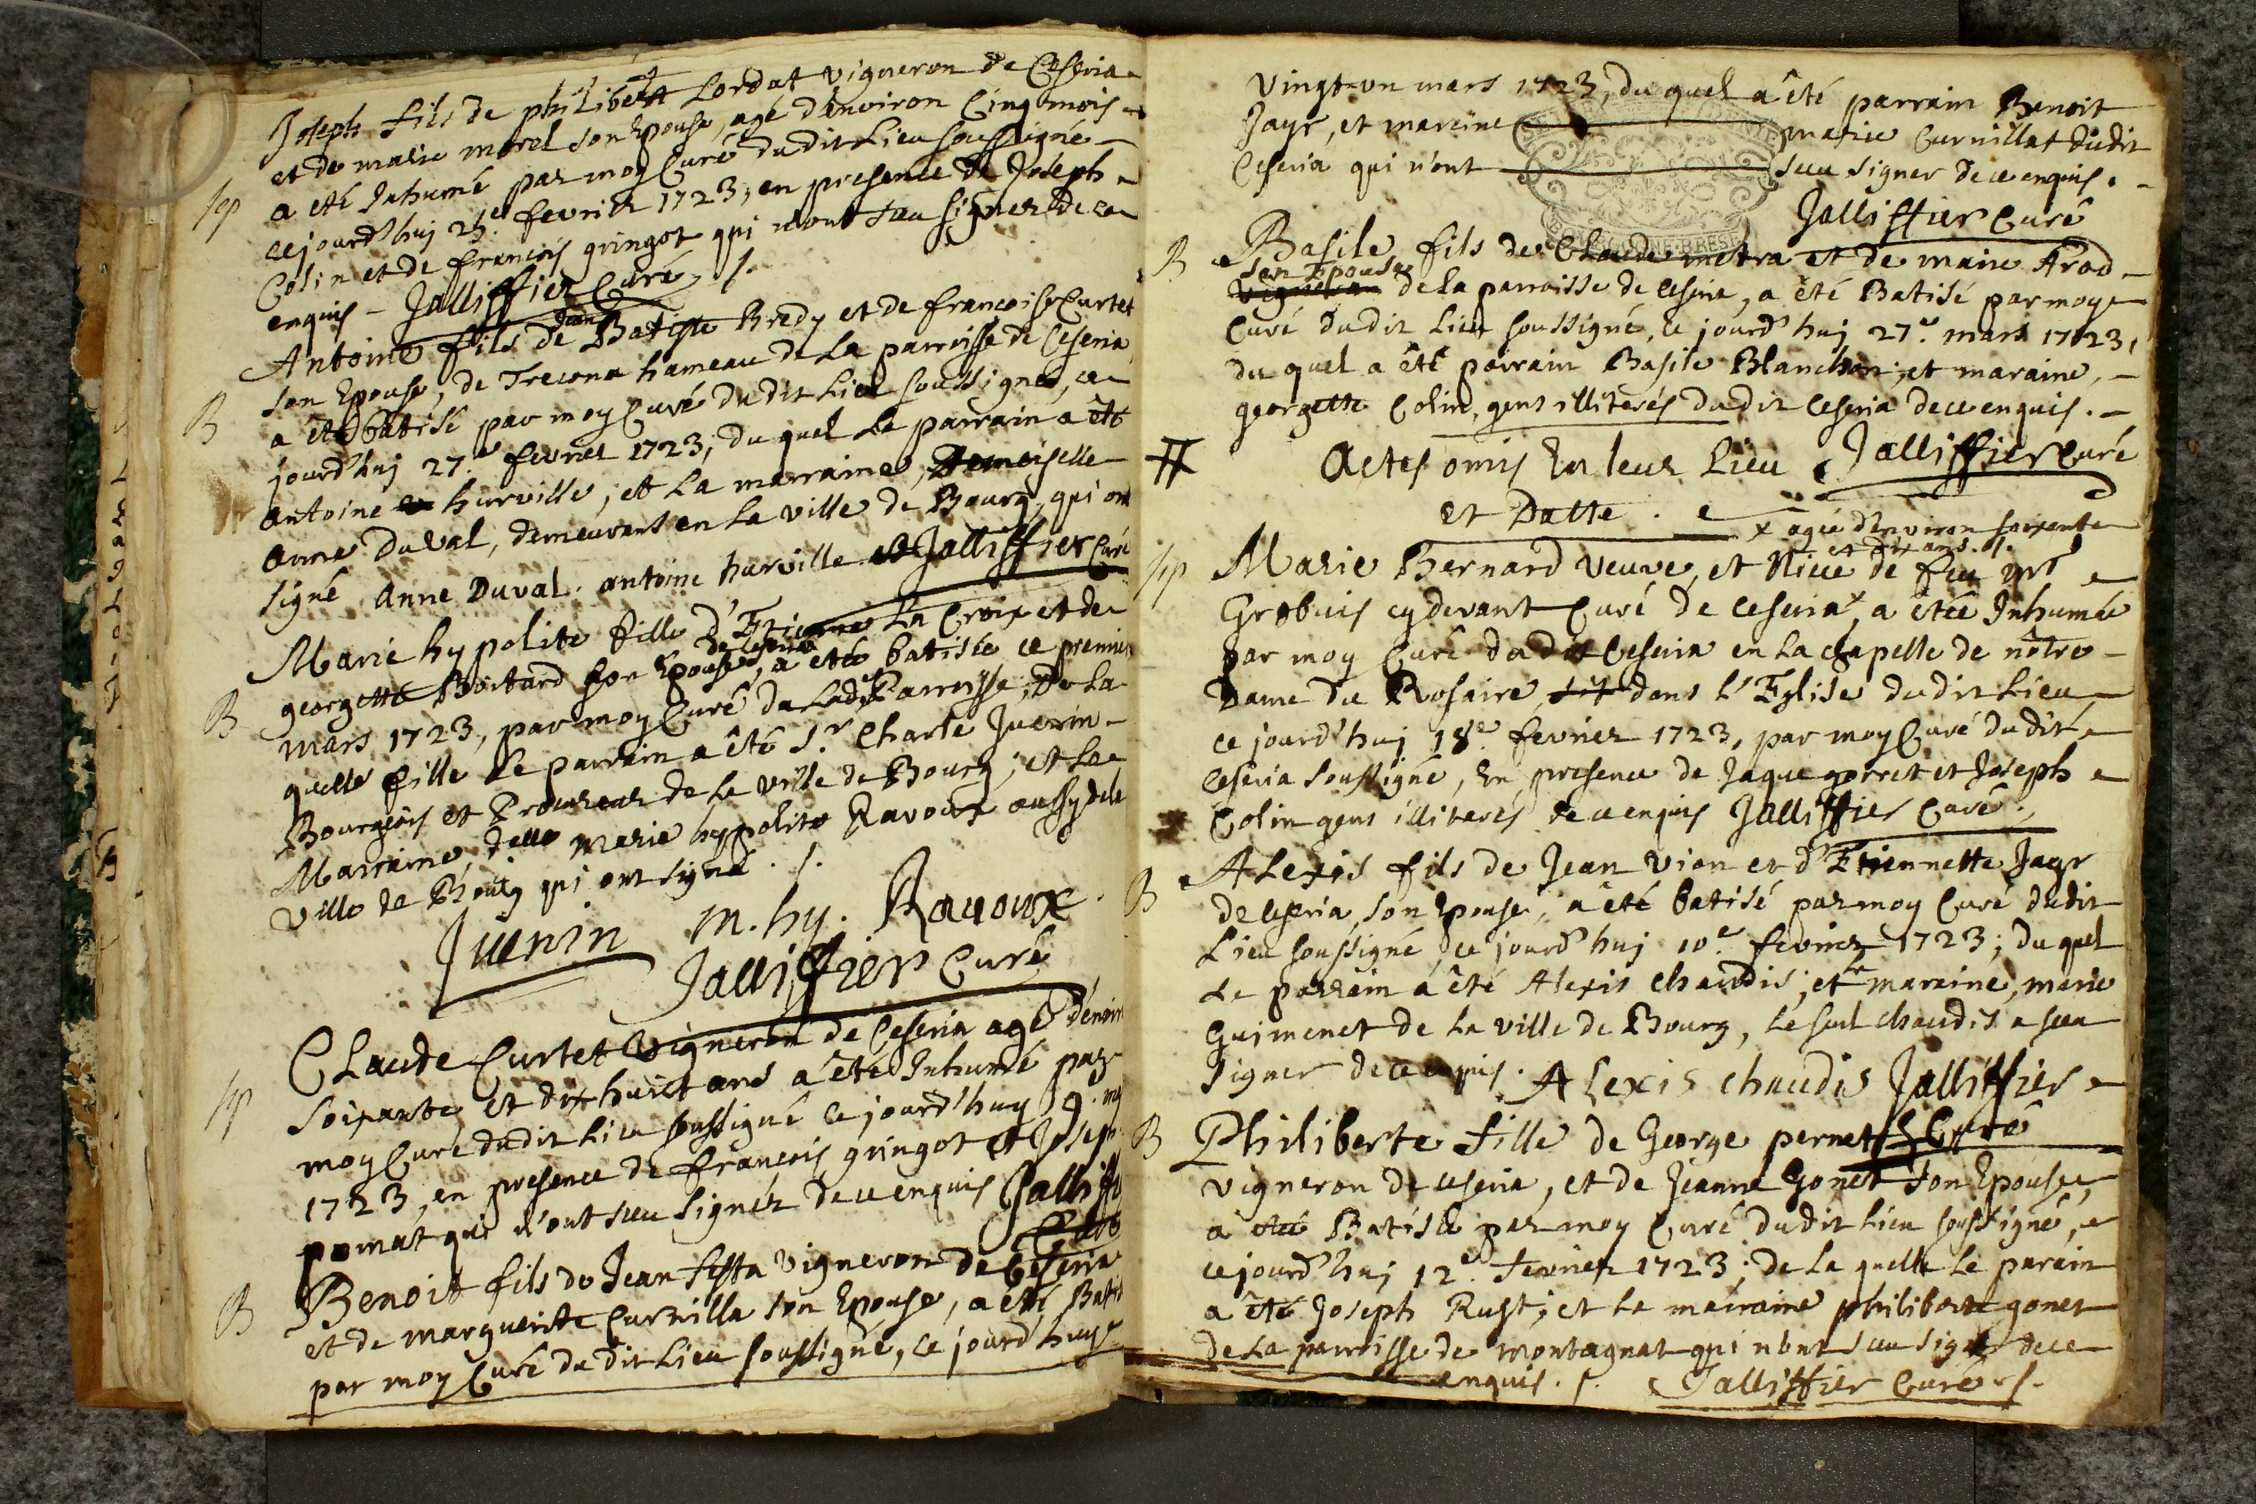 Joseph fils de philibert Lordat vigneron de Ceseria
et de marie morel son Epouse, agé denviron Cinq mois
Sep
a eté Inhumé par moy Curé du dit Lieu soussigné
cejourd'huj 25.e fevrier 1723, en presence de Joseph
Colin et de francois gringot qui n'ont sceu signer de ce
enquis - Jalliffier Curé
Antoine fils de Jean Batiste Bredy et de francoise Curtet
son Epouse, de Trecona hameau de La parroisse de Ceseria,
B
a êté batisé par moy Curé du dit Lieu soussigné, ce
jourd'huj 27.e fevrier 1723; du quel Le parrain a êté
antoine hurville; et La marraine, Demoiselle
anne Duval, demeurants en La ville de Bourg, qui ont
signé Anne Duval. antoine hurville et Jalliffier Curé
Marie hypolite fille d'Etienne La Croix et de
de Ceseria
georgette Boitard son Epouse, a etée batisée ce premier
B
mars 1723, par moy Curé de Ladte Parroisse; de La
quelle fille Le parrain a êté S.r Charle Juenin
Bourgeois et Procureur de La ville de Bourg; et La
Marraine, delle marie hypolite Ravoux aussy de la
ville de Bourg qui ont signé
Juenin m. hy. Ravoux
Jalliffier Curé
Claude Curtet vigneron de Ceseria agé d'environ
Sep
soixante et dix huict ans a êté Inhumé par
moy Curé du dit Lieu soussigné ce jourd'huy 9.
1723, en presence de francois gringot et Joseph
pomat qui n'ont sceu signer de ce enquis Jalliffier
Curé
B
Benoit fils de Jean vigneron de Ceseria
et de marguerite Curnilla son Epouse, a eté Batisé
par moy Curé du dit Lieu soussigné, ce jourd'huy
vingt-un mars 1723, du quel a êté parrain Benoit
Jayr, et mareine marie Curnillat dudit
Ceseria qui n'ont sceu signer de ce enquis.
Jalliffier Curé
B
Basile fils de Claude metra et de marie Arod
son Epouse
vigneron de la parroisse de Ceseria, a êté Batisé par moy
Curé du dit Lieu soussigné, ce jourd'huj 27.e mars 1723,
du quel a êté parrain Basile Blanchon; et maraine,
georgette Colin, gens illiterés du dit Ceseria de ce enquis.
Actes omis En leur Lieu Jalliffier Curé
et Datte.
x agée d'Environ soixante
et dix ans
Sep
Marie Bernard veuve, et Niece de feu mre
Grobuis cy devant Curé de Ceseria x, a êtée Inhumée
par moy Curé du dit Ceseria en La chapelle de nôtre
Dame du Rosaire, dans l'Eglise du dit Lieu,
ce jourd'huj 18.e fevrier 1723, par moy Curé du dit
Ceseria soussigné, En presence de Jaque gorret et Joseph
Colin gens illiterés de ce enquis Jalliffier Curé.
B
Alexis fils de Jean Vion et d'Etiennette Jayr
de Ceseria, son Epouse, a êté batisé par moy Curé dudit
Lieu soussigné, ce jourd'huj 10.e fevrier 1723; du quel
Le parrain a êté Alexis chaudis; et La maraine, marie
Guimenet de La ville de Bourg, Le seul chaudis a sceu
signer de ce enquis. Alexis chaudis Jalliffier
B
Philiberte fille de George pernet Curé
vigneron de Ceseria, et de Jeanne Gonet son Epouse,
a êtée Batisée par moy Curé du dit Lieu soussigné,
ce jourd'huj 12.e fevrier 1723; de La quelle Le parain
a êté Joseph Rust; et La mairaine philiberte gonet
de La parroisse de montagnat qui n'ont sceu signer de ce
enquis. Jalliffier Curé